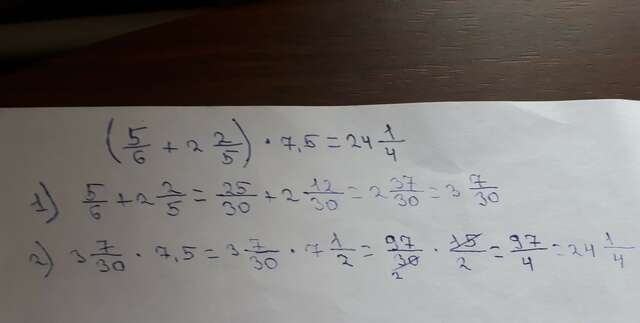 (5/6 + 2 2/5) · 7,5 = 24 1/4
1) 5/6 + 2 2/5 = 25/30 + 2 12/30 = 2 37/30 = 3 7/30
2) 3 7/30 · 7,5 = 3 7/30 · 7 1/2 = 97/30 2 · 15/2 = 97/4 = 24 1/4